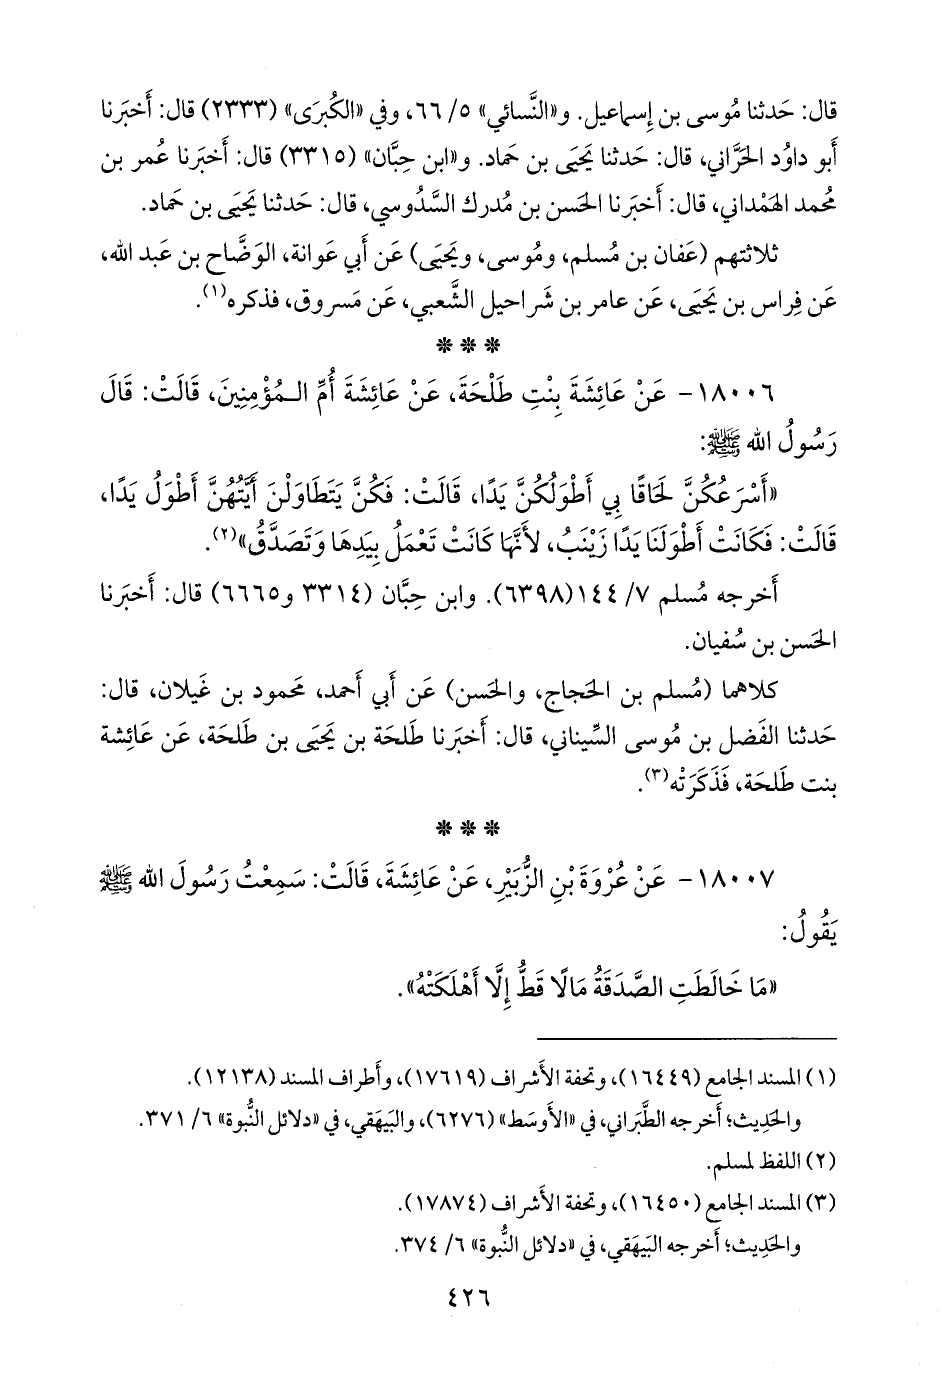 قال: حَدثنا مُوسى بن إِسماعيل. و«النَّسائي» ٥/ ٦٦، وفي «الكُبرَى» (٢٣٣٣) قال: أَخبَرنا
أَبو داوُد الحَرَّاني، قال: حَدثنا يَحيَى بن حَماد. و«ابن حِبَّان» (٣٣١٥) قال: أَخبَرنا عُمر بن
مُحمد الهَمْداني، قال: أَخبَرنا الحَسن بن مُدرك السَّدُوسي، قال: حَدثنا يَحيَى بن حَماد.
ثلاثتهم (عَفان بن مُسلم، ومُوسى، ويَحيَى) عَن أَبي عَوانة، الوَضَّاح بن عَبد الله،
عَن فِراس بن يَحيَى، عَن عامر بن شَراحيل الشَّعبي، عَن مَسروق، فذكره(١).
* * *
١٨٠٠٦- عَنْ عَائِشَةَ بِنْتِ طَلْحَةَ، عَنْ عَائِشَةَ أُمِّ الـمُؤْمِنِينَ، قَالَتْ: قَالَ
رَسُولُ الله ﷺ:
«أَسْرَعُكُنَّ لَحَاقًا بِي أَطْوَلُكُنَّ يَدًا، قَالَتْ: فَكُنَّ يَتَطَاوَلْنَ أَيَّتُهُنَّ أَطْوَلُ يَدًا،
قَالَتْ: فَكَانَتْ أَطْوَلَنَا يَدًا زَيْنَبُ، لأَنَّهَا كَانَتْ تَعْمَلُ بِيَدِهَا وَتَصَدَّقُ»(٢).
أَخرجه مُسلم ٧/ ١٤٤(٦٣٩٨). وابن حِبَّان (٣٣١٤ و٦٦٦٥) قال: أَخبَرنا
الحَسن بن سُفيان.
كلاهما (مُسلم بن الحَجاج، والحَسن) عَن أَبي أَحمد، مَحمود بن غَيلان، قال:
حَدثنا الفَضل بن مُوسى السِّيناني، قال: أَخبَرنا طَلحَة بن يَحيَى بن طَلحَة، عَن عَائِشة
بنت طَلحَة، فَذَكَرَتْه(٣).
* * *
١٨٠٠٧- عَنْ عُرْوَةَ بْنِ الزُّبَيْرِ، عَنْ عَائِشَةَ، قَالَتْ: سَمِعْتُ رَسُولَ الله ﷺ
يَقُولُ:
«مَا خَالَطَتِ الصَّدَقَةُ مَالًا قَطُّ إِلَّا أَهْلَكَتْهُ».
(١) المسند الجامع (١٦٤٤٩)، وتحفة الأَشراف (١٧٦١٩)، وأَطراف المسند (١٢١٣٨).
والحَدِيث؛ أَخرجه الطَّبَراني، في «الأَوسَط» (٦٢٧٦)، والبَيهَقي، في «دلائل النُّبوة» ٦/ ٣٧١.
(٢) اللفظ لمسلم.
(٣) المسند الجامع (١٦٤٥٠)، وتحفة الأَشراف (١٧٨٧٤).
والحَدِيث؛ أَخرجه البَيهَقي، في «دلائل النُّبوة» ٦/ ٣٧٤.
٤٢٦